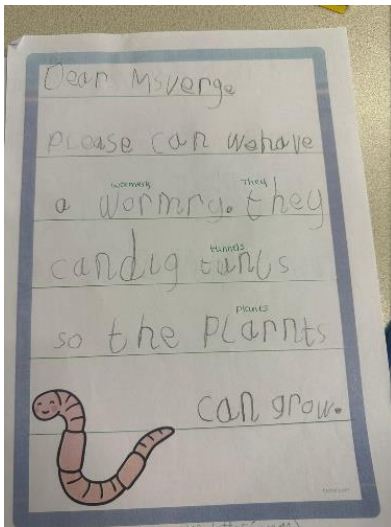 Dear Ms Verge
please can wehave
wormery They
a wormry. they
tunnels
candig tunls
plants
so the plarnts
can grow.